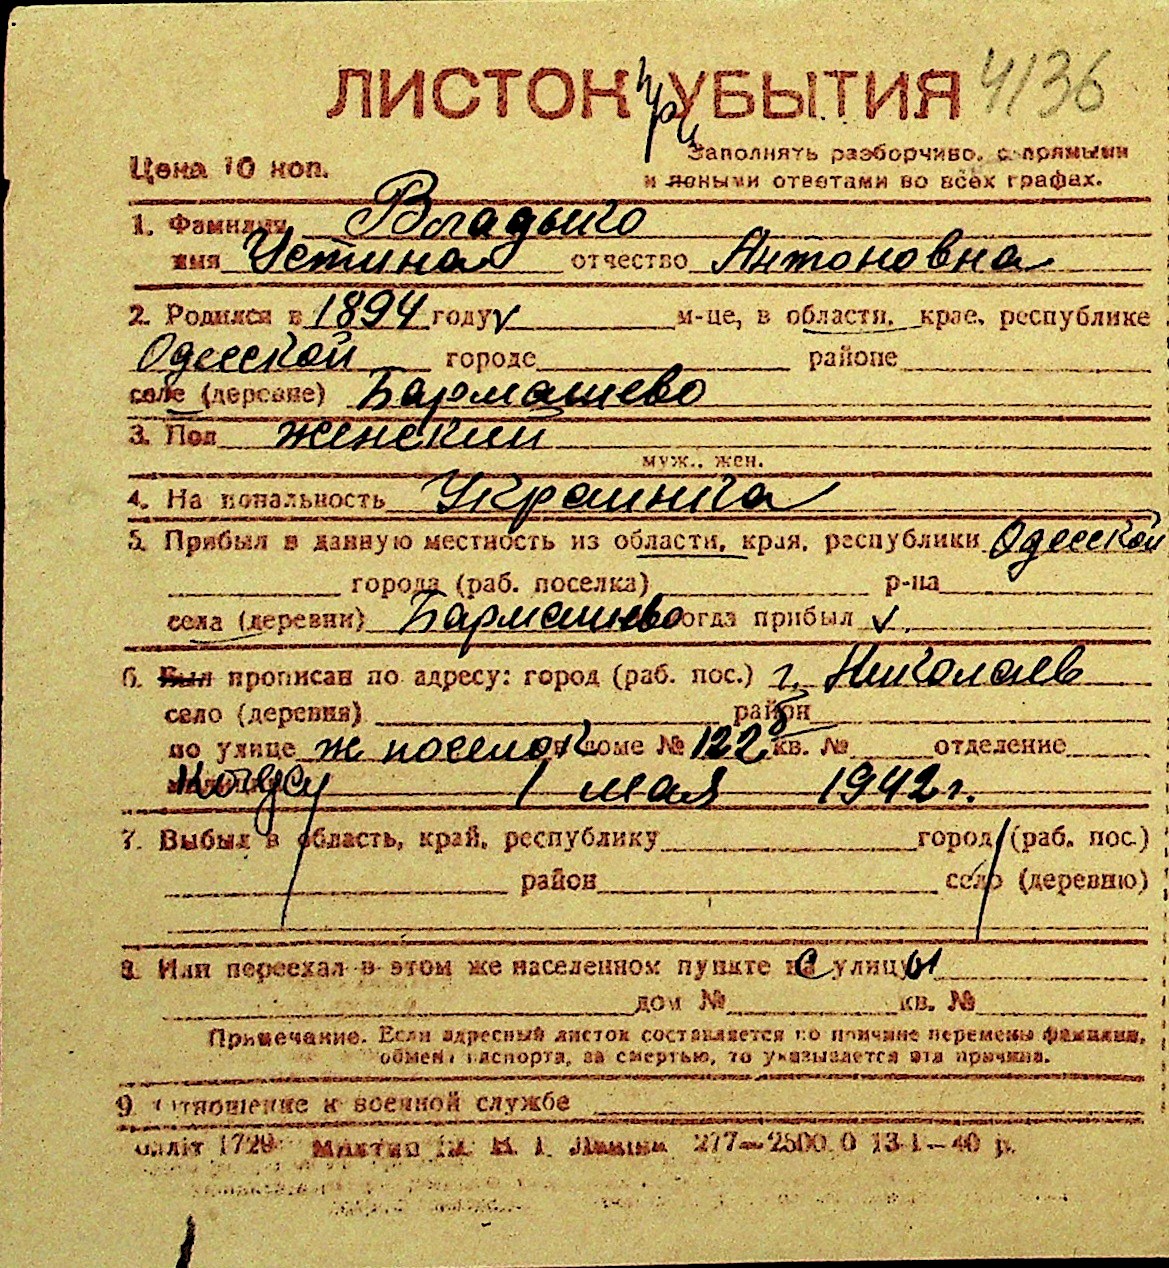 ЛИСТОК при УБЫТИЯ 4136
Цена 10 коп.
Заполнять разборчиво, с прямыми
и ясными ответами во всех графах.
1. Фамилия
имя Устина отчество Антоновна
2. Родился в 1894 году v м-це, в области, крае, республике
Одесской городе районе
селе (деревне) Бармашево
3. Пол женский
муж., жен.
4. Национальность Украинка
5. Прибыл в данную местность из области, края, республики Одесской
города (раб. поселка) р-на
села (деревни) Бармашево когда прибыл v
6. Был прописан по адресу: город (раб. пос.) г. Николаев
село (деревня) район
по улице ж поселок в доме № 122 кв. № отделение
1 мая 1942 г.
7. Выбыл в область, край, республику город (раб. пос.)
район село (деревню)
8. Или переехал в этом же населенном пункте с улицы
дом № кв. №
Примечание. Если адресный листок составляется по причине перемены фамилии,
обмена паспорта, за смертью, то указывается эта причина.
9. Отношение к военной службе
1729 277—2500.0 13-I—40 р.